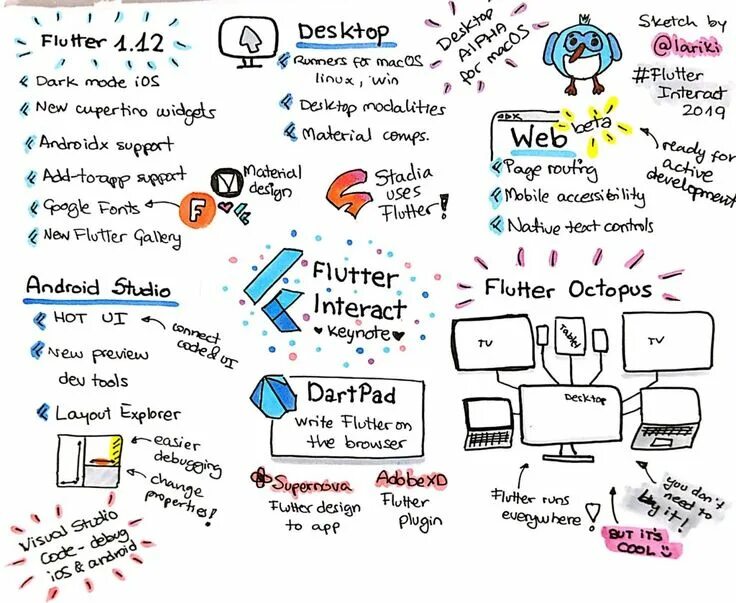 Flutter 1.12
Dark mode iOS
New cupertino widgets
Androidx support
Add-to-app support
Google Fonts
New Flutter Gallery
Material
design
F
Desktop
Runners for macOS
linux, win
Desktop modalities
Material comps.
Desktop
AlPHA
for macOS
Sketch by
@lariki
#Flutter
Interact
2019
Web
beta
ready for
active
development
Page routing
Mobile accessibility
Native text controls
Stadia
uses
Flutter!
Android Studio
HOT UI
connect
code & UI
New preview
dev tools
Layout Explorer
easier
debugging
change
properties!
Visual Studio
Code - debug
iOS & android
Flutter
Interact
♥ Keynote ♥
DartPad
Write Flutter on
the browser
Supernova
Flutter design
to app
AdobeXD
Flutter
plugin
Flutter Octopus
TV
Tablet
TV
Desktop
Flutter runs
everywhere!
you don't
need to
buy it!
BUT IT'S
COOL